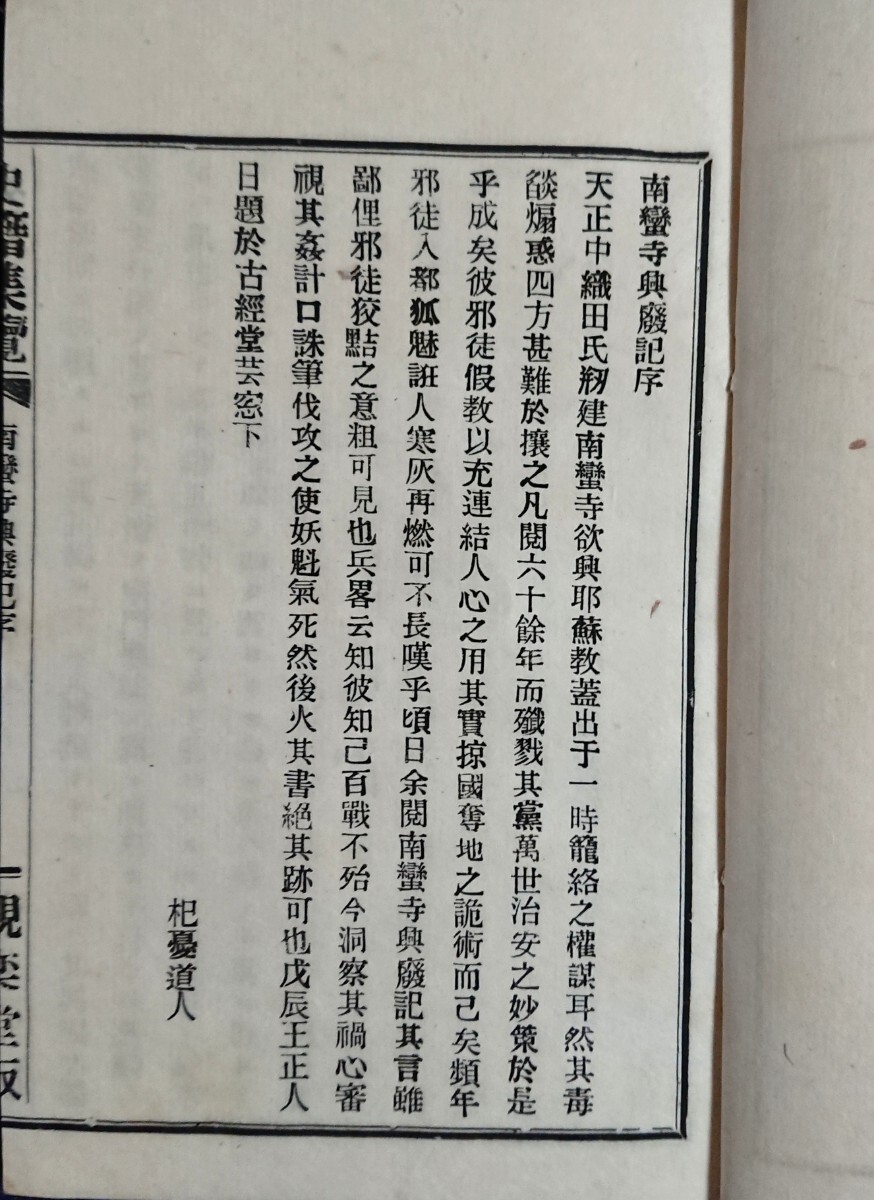 南蠻寺興廢記序
天正中織田氏剏建南蠻寺欲興耶蘇教蓋出于一時籠絡之權謀耳然其毒
燄煽惑四方甚難於攘之凡閱六十餘年而殲戮其黨萬世治安之妙策於是
乎成矣彼邪徒假教以充連結人心之用其實掠國奪地之詭術而己矣頻年
邪徒入都狐魅誑人寒灰再燃可不長嘆乎頃日余閱南蠻寺興廢記其言雖
鄙俚邪徒狡黠之意粗可見也兵畧云知彼知己百戰不殆今洞察其禍心審
視其姦計口誅筆伐攻之使妖魁氣死然後火其書絕其跡可也戊辰王正人
日題於古經堂芸窓下
杞憂道人
史籍集覽
南蠻寺興廢記序
一
觀奕堂版